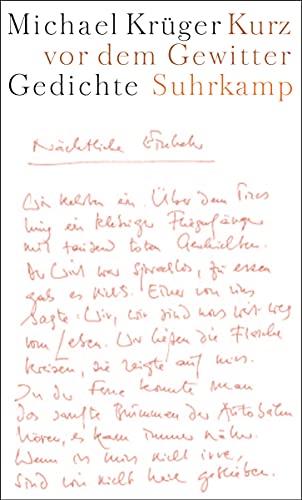 Michael Krüger Kurz
vor dem Gewitter
Gedichte Suhrkamp
Nächtliche Einkehr
Wir kehrten ein. Über dem Tresen
hing ein klebriger Fliegenfänger
mit tausend toten Geschichten.
Der Wirt war sprachlos, zu essen
gab es nichts. Einer von uns
sagte: Wir, wir sind was weg
vom Leben. Wir ließen die Flasche
kreisen, sie zeigte auf mich.
In der Ferne konnte man
das sanfte Brummen der Autobahn
hören, es kam immer näher.
Wenn ich mich nicht irre,
sind wir nicht lange geblieben.